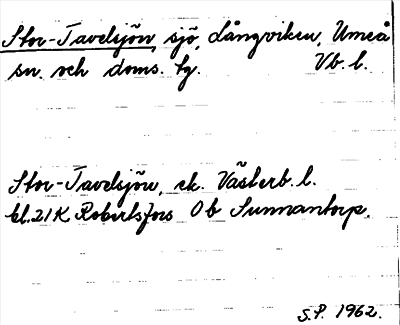 Stor-Tavelsjön, sjö, Långviken, Umeå
sn. och doms. tg. Vb. l.
Stor-Tavelsjön, ek. Västerb. l.
bl. 21K Robertsfors 0b Sunnantorp.
S.P. 1962.